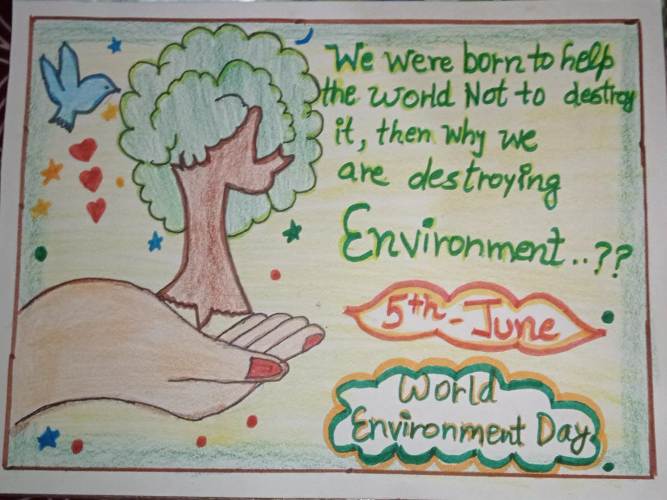 We were born to help
the world Not to destroy
it, then why we
are destroying
Environment..??
5th - June
World
Environment Day